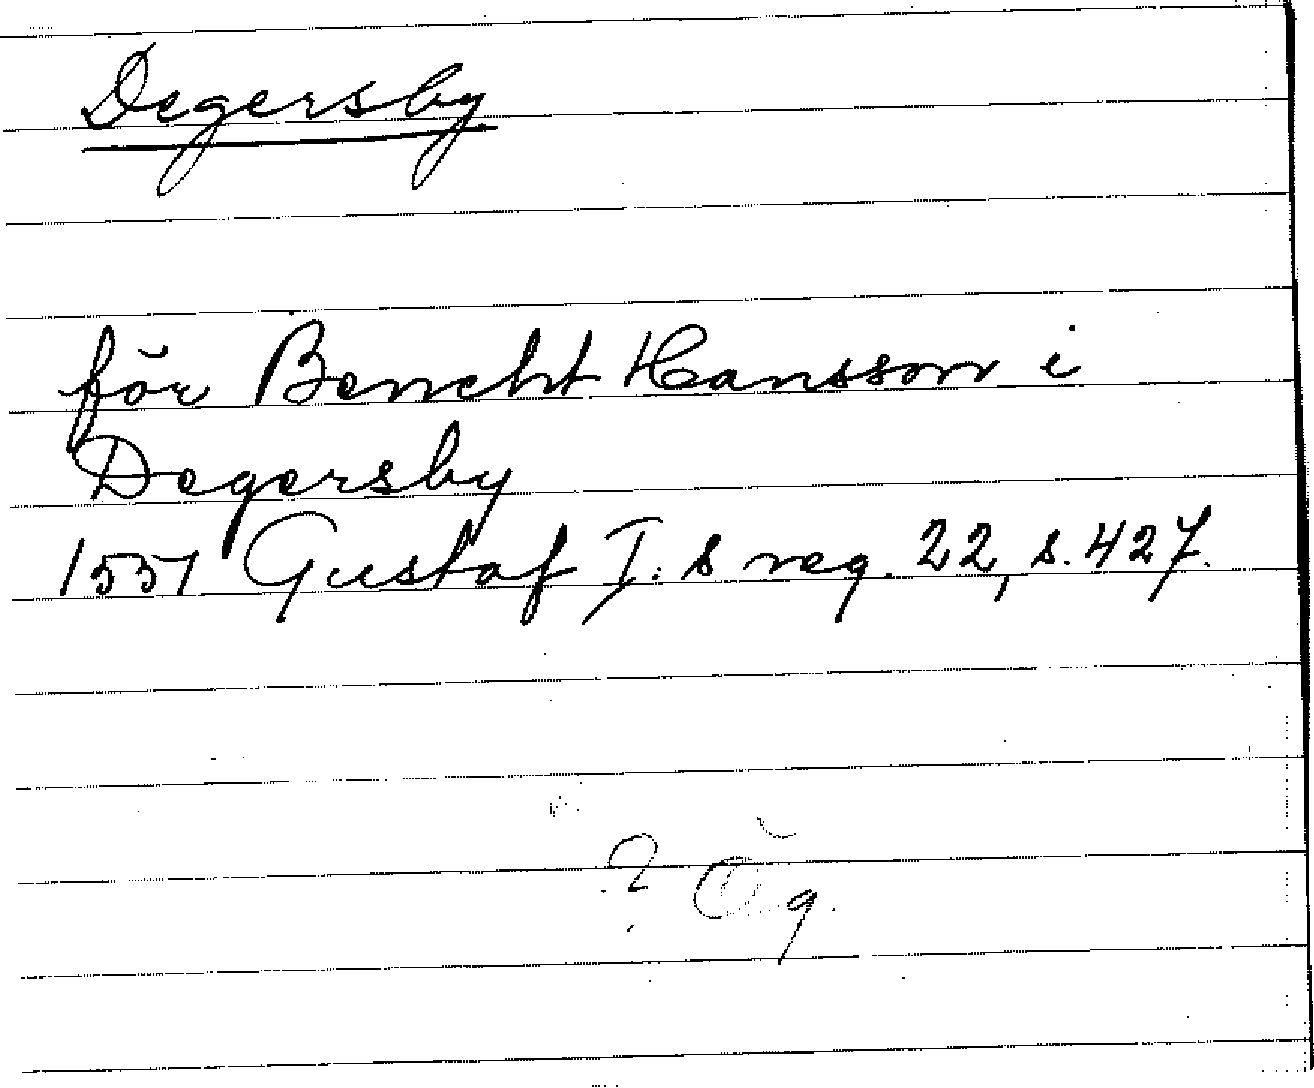 Degersby
för Bencht Hansson i
Degersby
1551 Gustaf I:s reg. 22, s. 427.
? Ög.